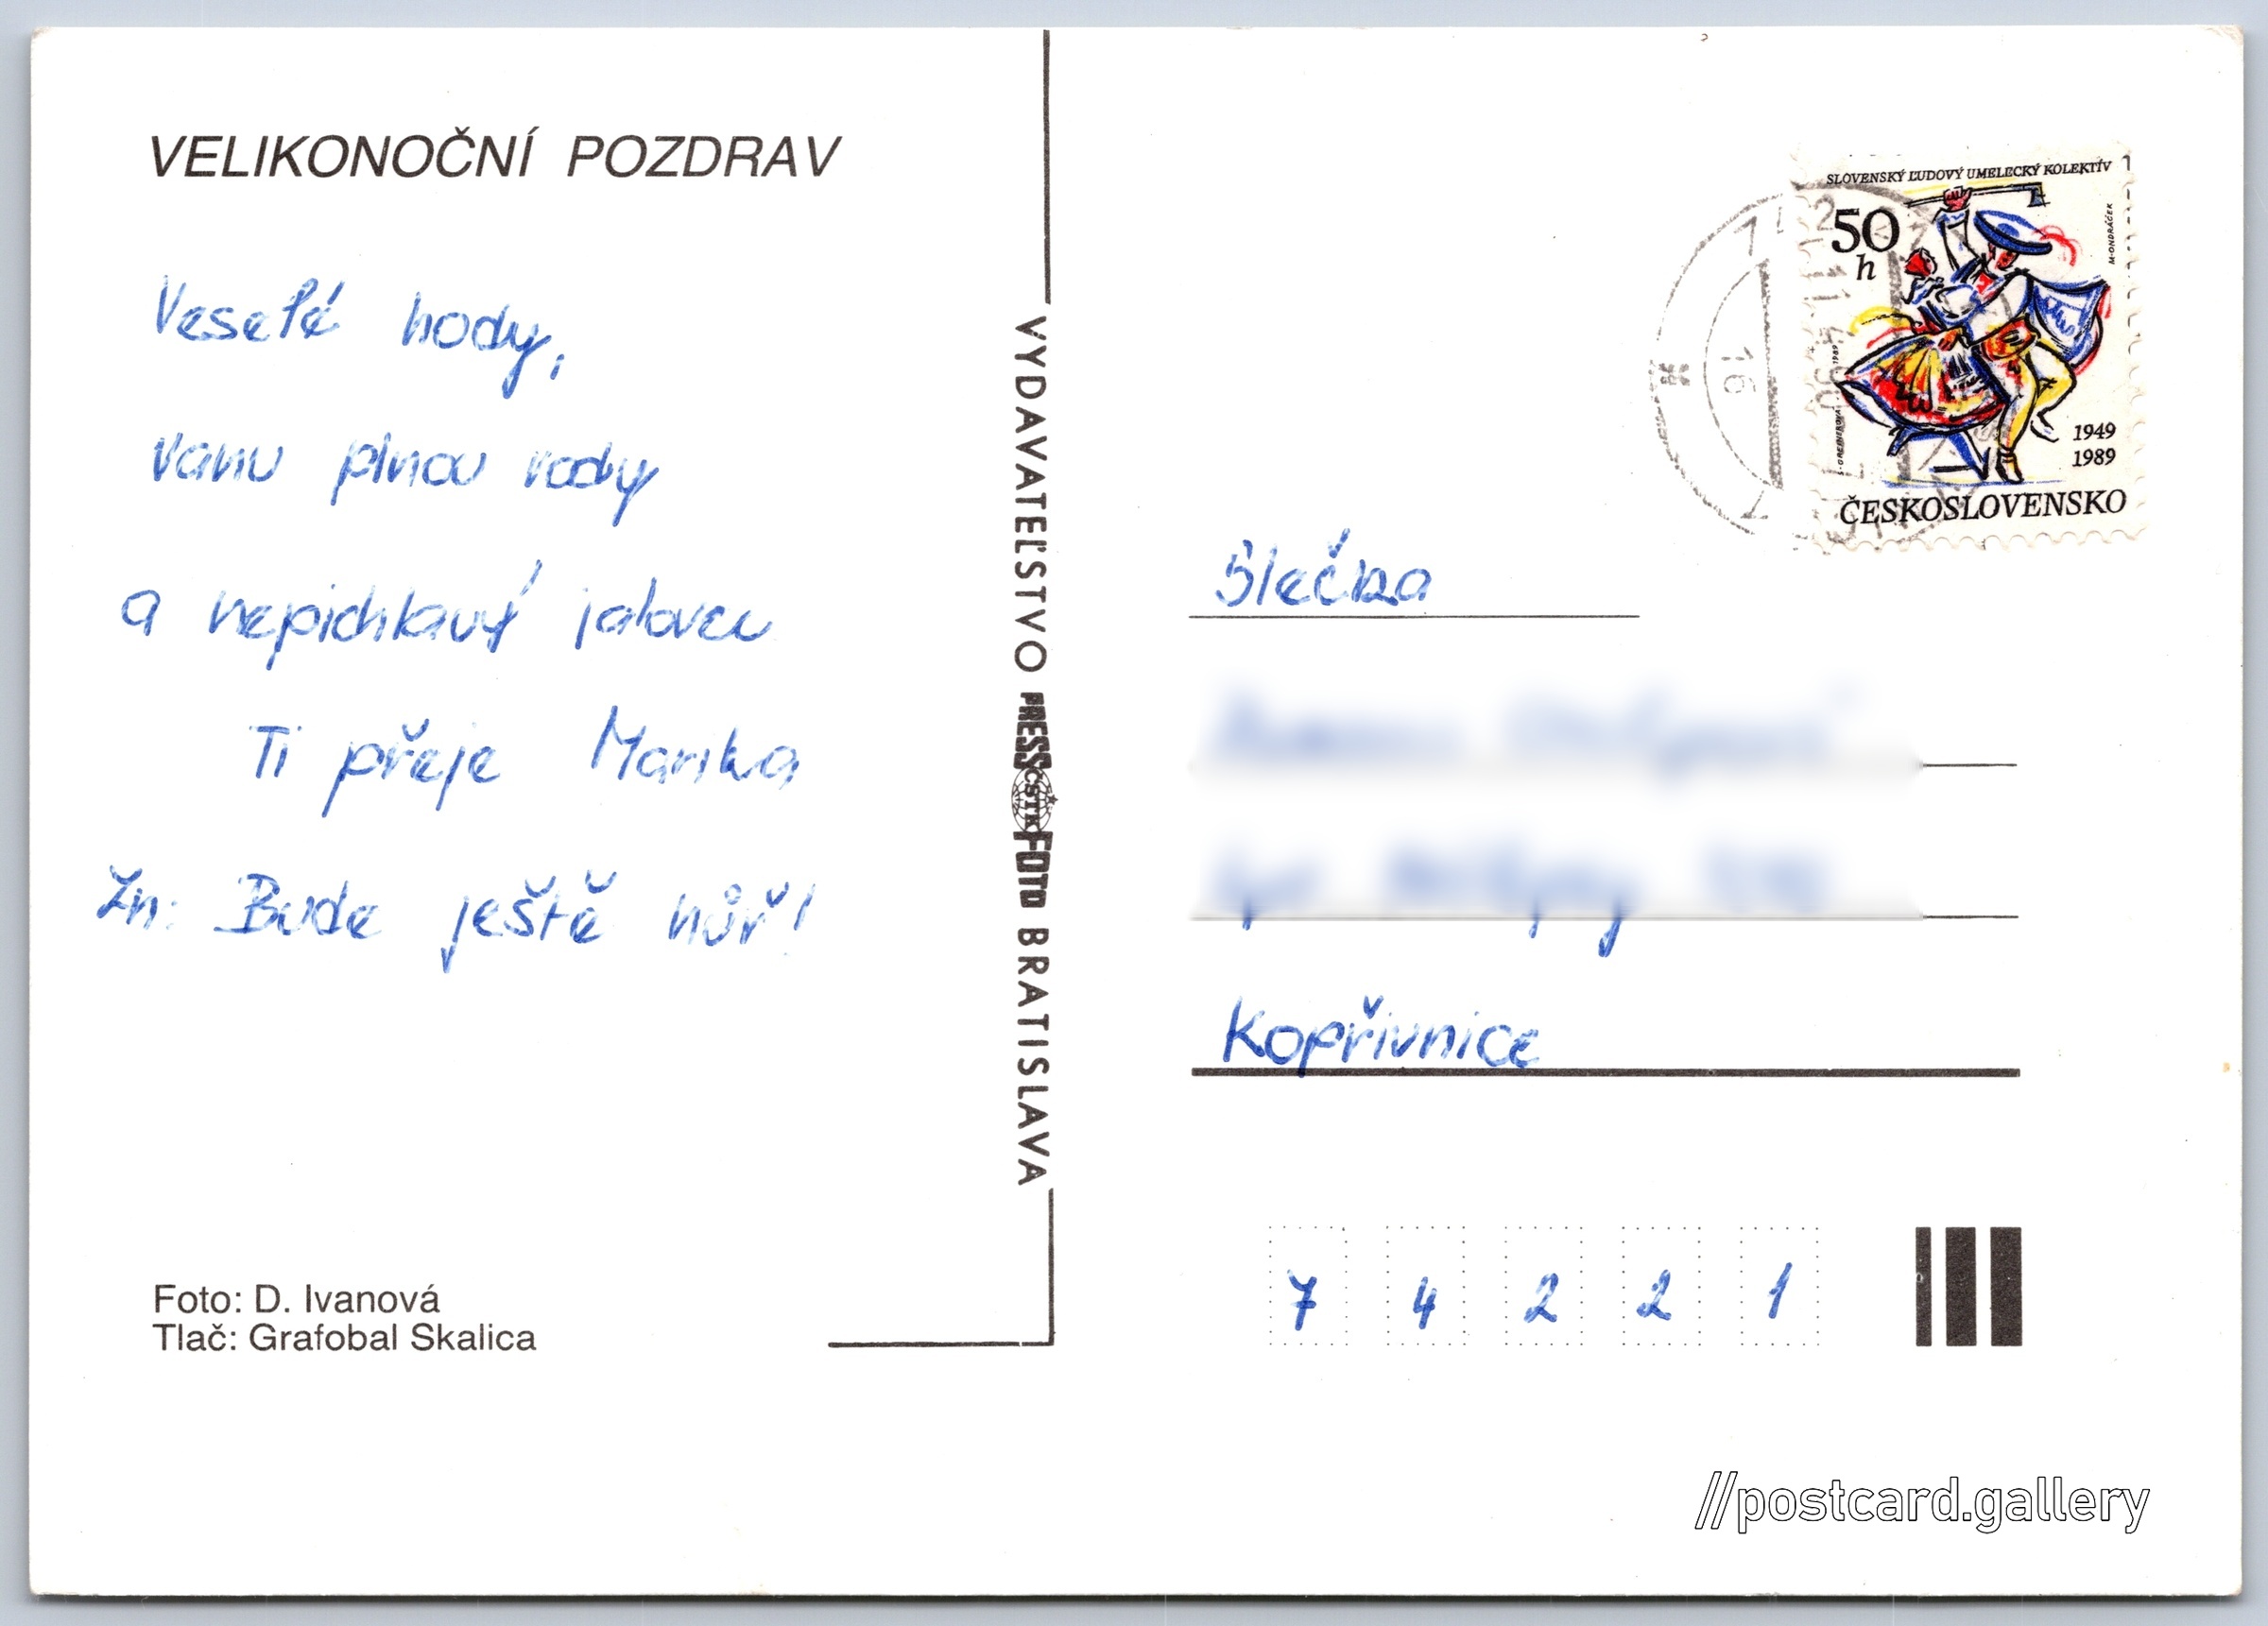 VELIKONOČNÍ POZDRAV
Veselé hody,
vanu plnou vody
a nepichlavý jalovec
Ti přeje Marika
Zn: Bude ještě hůř!
Foto: D. Ivanová
Tlač: Grafobal Skalica
VYDAVATEĽSTVO PRESSFOTO BRATISLAVA
ČSTK
SLOVENSKÝ ĽUDOVÝ UMELECKÝ KOLEKTÍV
50
h
M. ONDRÁČEK
1949
1989
ČESKOSLOVENSKO
16
Slečna
Kopřivnice
7 4 2 2 1
//postcard.gallery